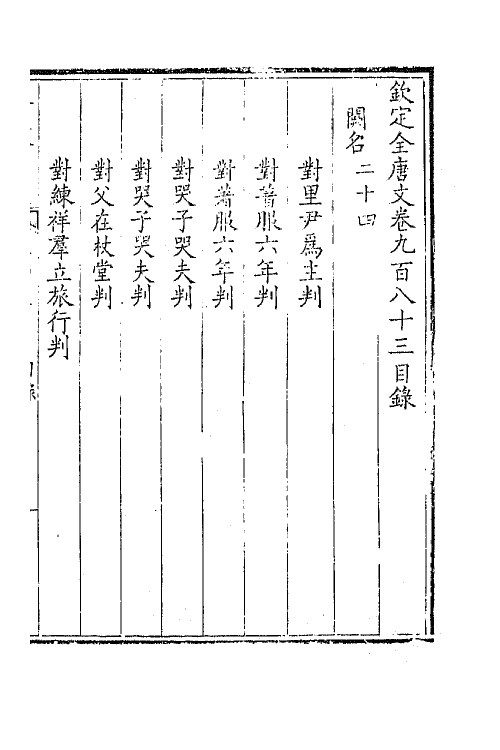 欽定全唐文卷九百八十三目錄
闕名二十四
對里尹爲主判
對著服六年判
對著服六年判
對哭子哭夫判
對哭子哭夫判
對父在杖堂判
對練祥羣立旅行判